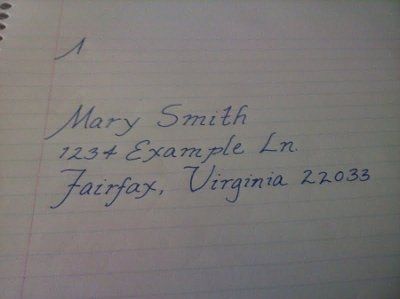 Mary Smith
1234 Example Ln.
Fairfax, Virginia 22033